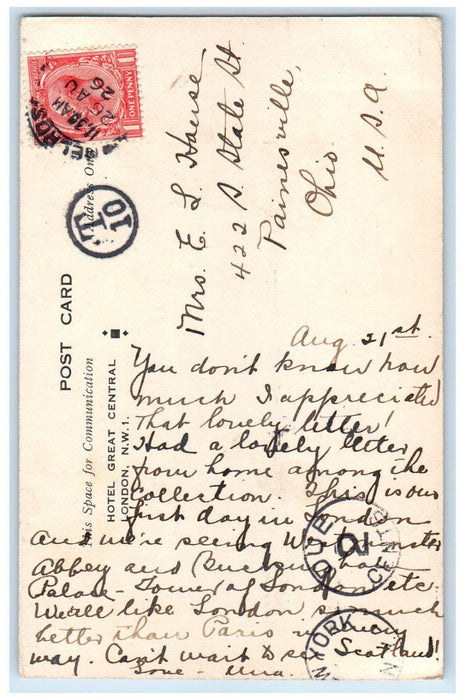 ONE PENNY
11.30 AM
25 AU
26
T.
10
POST CARD
Address On
This Space for Communication
HOTEL GREAT CENTRAL
LONDON, N.W.1.
Mrs. E. L. House
422 S State St.
Painesville,
Ohio.
U.S.a.
Aug. 21st.
You don't know how
much I appreciated
that lovely letter!
Had a lovely letter
from home among the
collection. This is our
first day in London
and we're seeing Westminster
Abbey and Buckingham
Palace - Tower of London etc.
We all like London so much
better than Paris in every
way. Can't wait to see Scotland!
Love -
DUE
2
CENTS
N YORK
N